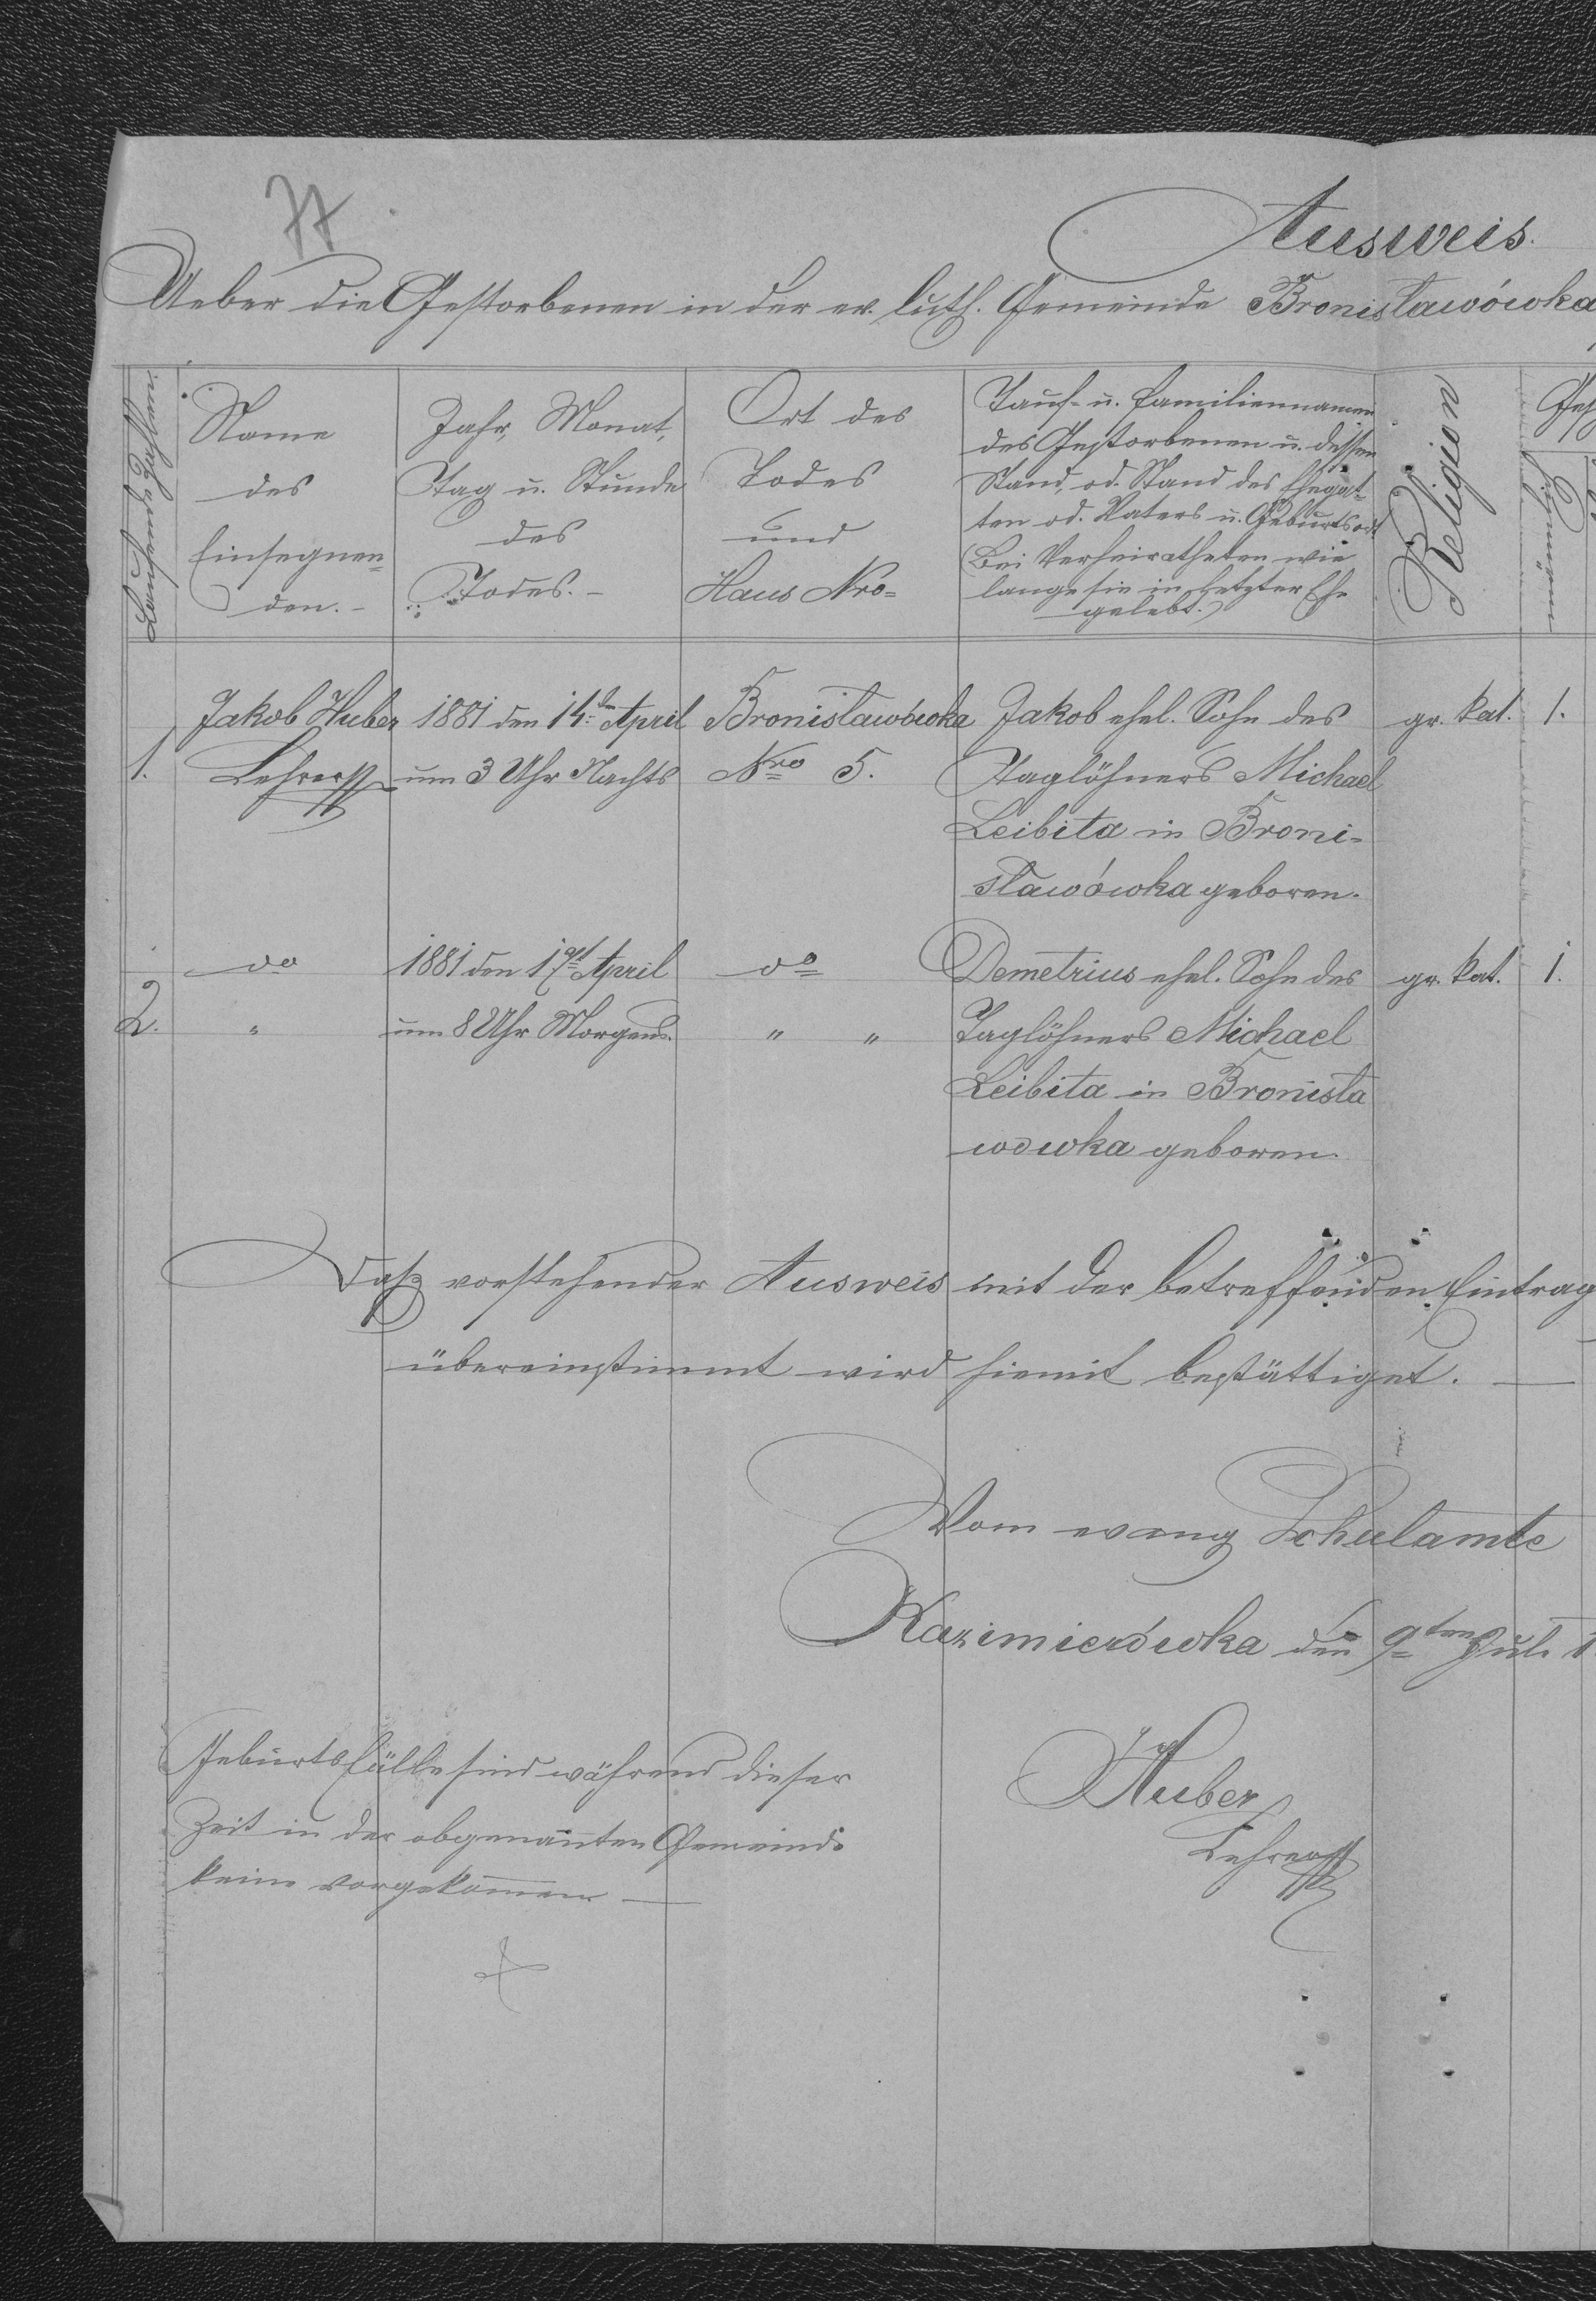 77
Ausweis.
Ueber die Gestorbenen in der ev. luth. Gemeinde Bronisławówka
Laufende Zahlen.
Name
des
Einsegnen=
den.-
Jahr, Monat,
Tag u. Stunde
des
Todes.-
Ort des
Todes
und
Haus Nro=
Tauf- u. Familiennamen
des Gestorbenen u. dessen
Stand, od. Stand des Ehegat-
ten od. Vaters u. Geburtsort
(Bei Verheiratheten wie
lange sie in letzter Ehe
gelebt.)
Religion
Ges
Männlich
1.
Jakob Huber
Lehrer
1881 den 14. April
um 3 Uhr Nachts
Bronisławówka
Nro 5.
Jakob ehel. Sohn des
Taglöhners Michael
Leibita in Broni-
sławówka geboren.
gr. kat.
1.
2.
do
"
1881 den 17. April
um 8 Uhr Morgens.
do
" "
Demetrius ehel. Sohn des
Taglöhners Michael
Leibita in Bronisła
wowka geboren.
gr. kat.
1.
Daß vorstehender Ausweis mit der betreffenden Eintrag
übereinstimmt wird hiemit bestättiget. —
Vom evang Schulamte
Kazimierówka den 9ten Juli 1
Huber
Lehrer
Geburtsfälle sind während dieser
Zeit in der obgenannten Gemeinde
keine vorgekommen —